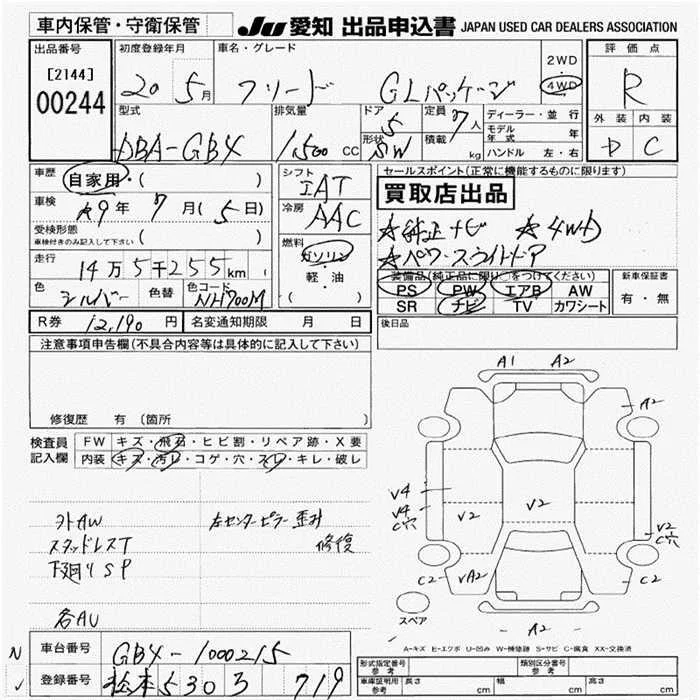 車内保管・守衛保管
JU 愛知 出品申込書 JAPAN USED CAR DEALERS ASSOCIATION
出品番号
[2144]
00244
初度登録年月
20 5月
車名・グレード
フリード GLパッケージ
2WD
・
4WD
評価点
R
外装 内装
D C
型式
DBA-GB4
排気量
1,500 CC
ドア
5
形状
SW
定員 7人
積載 kg
ディーラー・並行
モデル年式 年
ハンドル 左・右
車歴
自家用・( )
車検
29年 7月(5日)
受検形態
車検付きのみ記入して下さい ( )
走行
14万5千255km ( )
色
シルバー
色替
色コード
NH700M
シフト
IAT
冷房
AAC
燃料
ガソリン
・
軽・油
( )
セールスポイント(正常に機能するものに限ります)
買取店出品
☆純正ナビ ☆4WD
☆パワースライドドア
装備品(純正品に限り○をつけてください)
PS PW エアB AW
SR ナビ TV カワシート
新車保証書
有・無
R券 12,190 円
名変通知期限 月 日
後日品
注意事項申告欄(不具合内容等は具体的に記入して下さい)
修復歴 有(箇所 )
検査員記入欄
FW キズ・飛石・ヒビ割・リペア跡・X要
内装 キズ・汚レ・コゲ・穴・スレ・キレ・破レ
外AW
スタッドレスT
下廻りSP
各AU
左センターピラー歪み
修復
A1 A2
A2
V4
V4
C穴
V2
V2
V2
C穴
C2
VA2
C2
A2
スペア
A-キズ E-エクボ U-凹み W-補修跡 S-サビ C-腐食 XX-交換済
N 車台番号 GB4-1000215
✓ 登録番号 松本 530 ろ 719
形式指定番号
参考
類別区分番号
参考
車庫証明用
参考
長さ cm
幅 cm
高さ cm